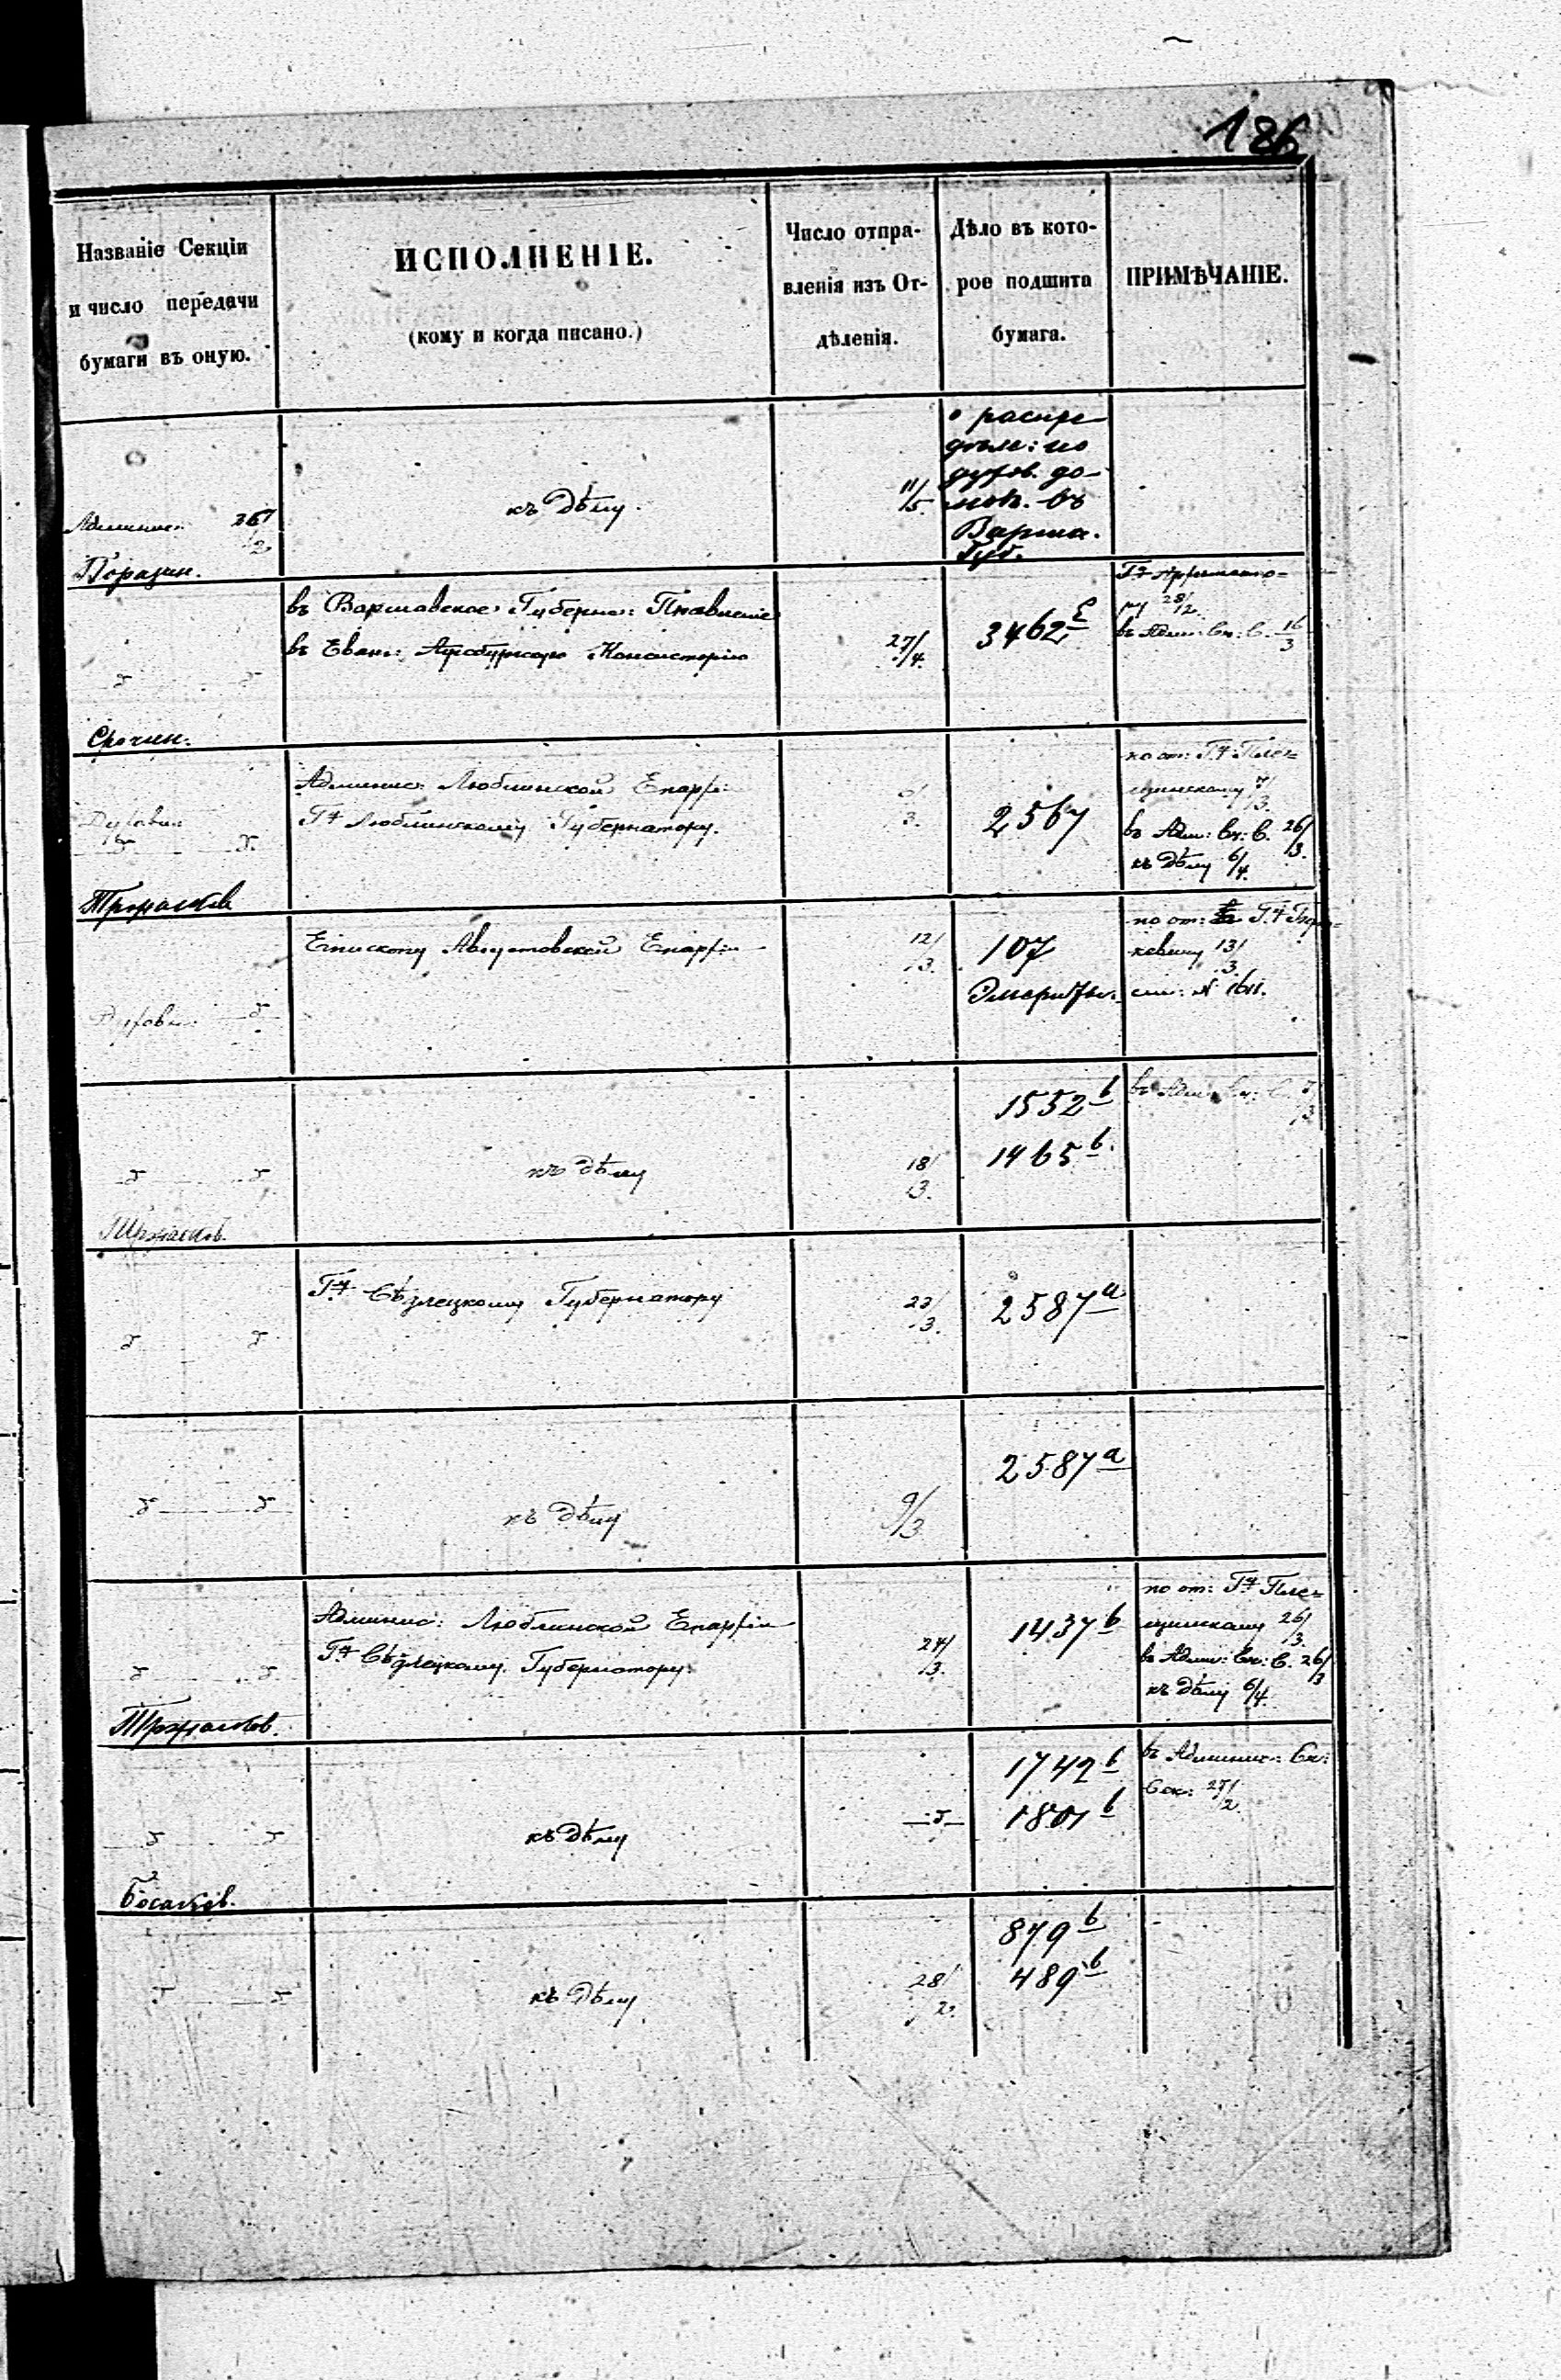 186
Названіе Секціи
и число передачи
бумаги въ оную.
ИСПОЛНЕНІЕ.
(кому и когда писано.)
Число отпра-
вленія изъ От-
дѣленія.
Дѣло въ кото-
рое подшита
бумага.
ПРИМѢЧАНІЕ.
къ Дѣлу.
11/5.
о распре-
дѣл: по
духов. до-
мов. въ
Варша.
Губ.
въ Варшавское Губерн: Правленіе
въ Еван: Аугсбургскую Консисторію
27/4.
3462
28/2.
въ Адми: Вн: С. 16/3
Срочн.
Админис: Люблинской Епархі:
Гну Люблинскому Губернатору.
3.
2567
по от: Гну Пле-
щинскому 7/3.
въ Адм: Вн: С. 26/3.
къ Дѣлу 6/4.
Духовн:
Епископу Августовской Епархіи
12/3.
107
Эмеритъ.
по от: Гну
кевичу 13/3
см: № 1611.
Духовн:
къ Дѣлу
18/3.
1552 b
1465 b.
въ Адм: Вн: С.
Гну Сѣдлецкому Губернатору
23/3.
2587 a
къ Дѣлу
9/3
2587 a
Админис: Люблинской Епархіи
Гну Сѣдлецкому Губернатору:
24/3.
1437 b
по от: Гну Пле-
щинскому 26/3.
въ Адми: Вн: С. 26/3
къ Дѣлу 6/4.
къ Дѣлу
1742 b
1801 b
въ Админис: Вн:
Сек: 27/2.
къ Дѣлу
28/2.
879 b
489 b